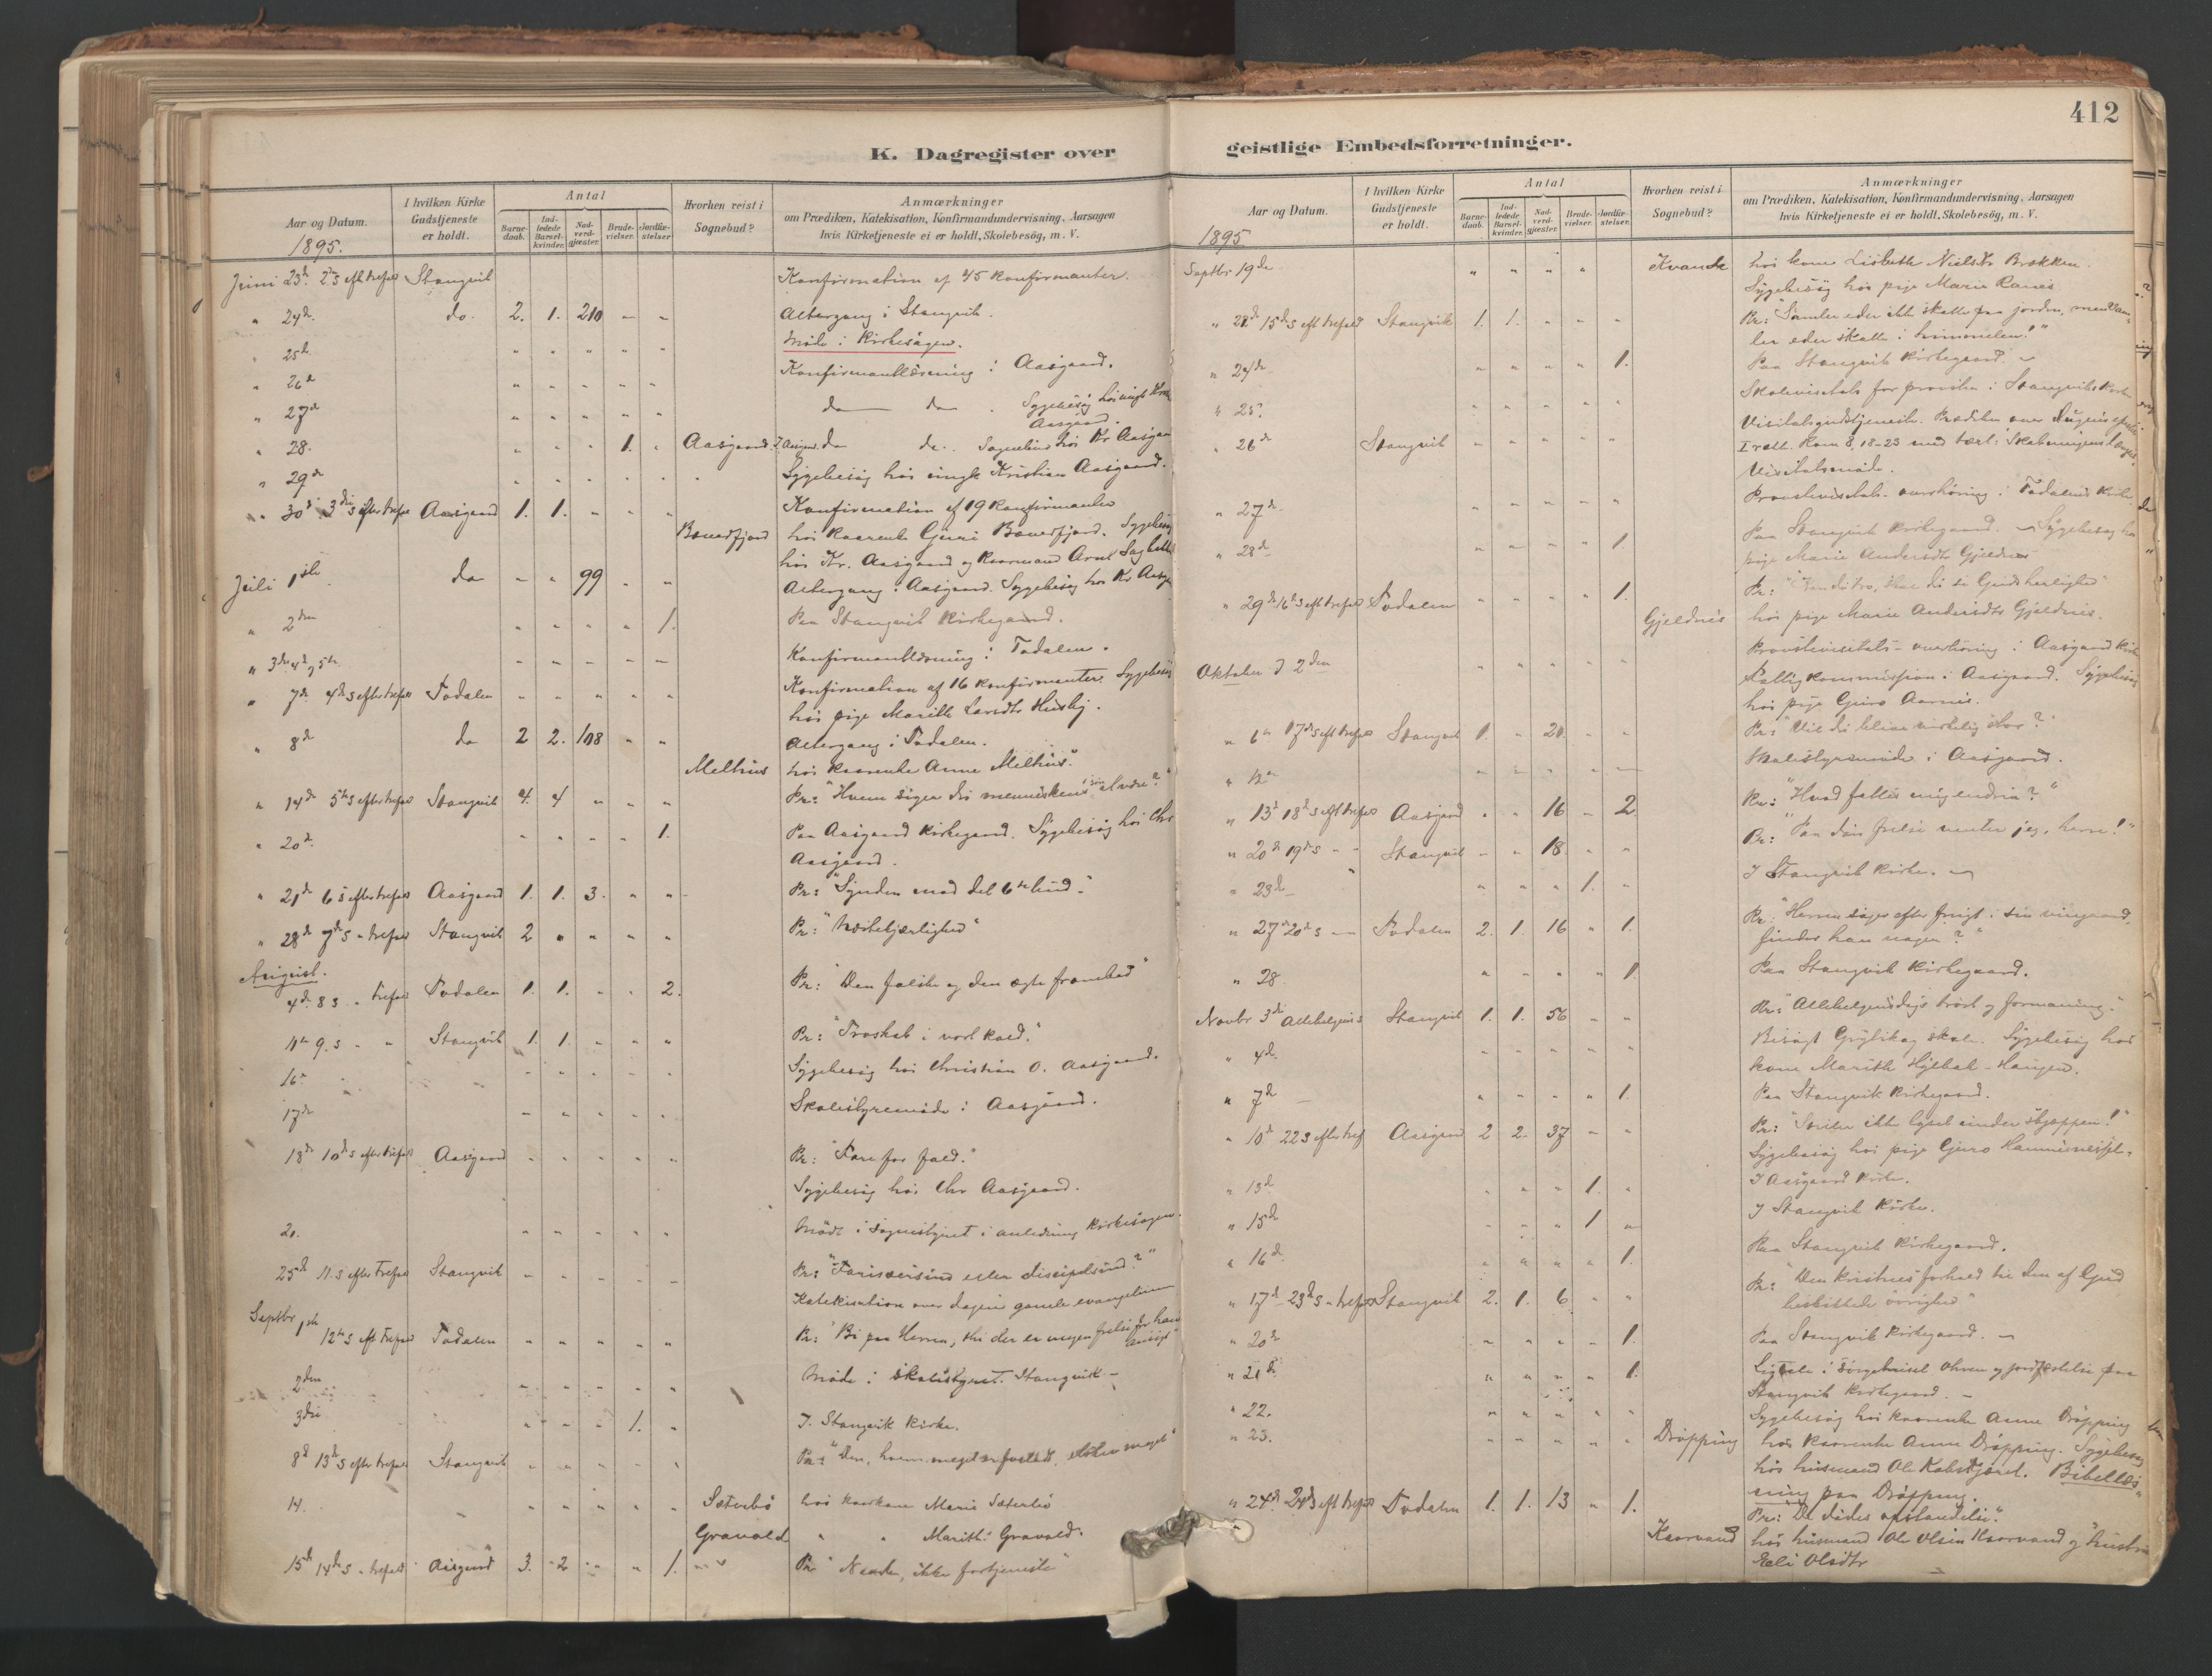 412
K. Dagregister over geistlige Embedsforretninger.
Aar og Datum. 1895.
I hvilken Kirke Gudstjeneste er holdt.
Antal
Barnedaab. Indledede Barselkvinder. Nadverdgjæster. Brudevielser. Jordfæstelser
Hvorhen reist i Sognebud?
Anmærkninger
om Prædiken, Katekisation, Konfirmandundervisning, Aarsagen
hvis Kirketjeneste ei er holdt, Skolebesög, m. V.
Juni 23d 2 S eft trefol Stangvik Konfirmation af 45 konfirmanter.
" 24d do. 2. 1. 210 - - Altergang i Stangvik.
" 25d " " " " " Möde i kirkesagen.
" 26d " " " " " Konfirmantlæsning i Aasgaard.
" 27d " " " " " do do . Sygebesög hos
Aasgaard.
" 28. " " " " 1. " Aasgaard do do. Sognebud hos Kr Aasgaard
" 29d " " " " " Sygebesög hos Kristian Aasgaard.
" 30d 3die S efter trefol Aasgaard 1. 1. " " " Konfirmation af 19 konfirmanter
Bæverfjord hos kaarenke Guri Bæverfjord. Sygebesög
hos Kr. Aasgaard og kaarmand Arnt
Juli 1ste do - " 99 " " Altergang i Aasgaard. Sygebesög hos Kr Aasg
" 2den " " " " 1. Paa Stangvik Kirkegaard.
" 3die 4d 5te - - - - - Konfirmantlæsning i Todalen.
" 7d 4d S efter trefol Todalen " " " " " Konfirmation af 16 konfirmanter. Sygebesög
hos pige Marith Larsdtr Husby.
" 8d do 2 2. 108 " " Altergang i Todalen.
Melhus hos kaarenke Anne Melhus.
" 14d 5te S efter trefol Stangvik 4. 4 " " " Pr: "Hvem siger De menneskens sön at være?"
" 20d " " " " 1. Paa Aasgaard Kirkegaard. Sygebesög hos Chr
Aasgaard.
" 21d 6 S efter trefol Aasgaard 1. 1. 3. " " Pr: "Synden mod det 6te bud."
" 28d 7d S - trefol Stangvik 2 " " " " Pr: "Næstekjærlighed"
August.
4d 8 S - trefol Todalen 1. 1. " " 2. Pr: "Den falske og den ægte fromhed"
11te 9. S - " Stangvik 1. 1. " " " Pr: "Troskab i vort kald."
16d - - - - - Sygebesög hos Christian O. Aasgaard.
17d - - - - - Skolestyremöde i Aasgaard.
18d 10d S efter trefol Aasgaard - - - - - Pr: "Fare for fald."
Sygebesög hos Chr Aasgaard.
21. - - - - - Möde i sognestyret i anledning kirkesagen.
25d 11. S efter trefol Stangvik - - - - - Pr: "Farisæersind eller disciplesind?"
Katekisation over dagens gamle evangelium
Septbr 1ste 12te S eft trefol Todalen " " " " " Pr: "Bi paa Herren, thi der er ingen frelse for ham
2den - - - - - Möde i skolestyret. Stangvik -
3die " - - - 1. " I Stangvik Kirke.
8d 13d S efter trefol Stangvik - - - - - Pr: "Den, hvem meget er forladt, elsker meget"
14. " " " " " Sæterbö hos kaarkone Marie Sæterbö
Gravold " " Marith: Gravold.
15d 14de S - trefol Aasgaard 3. 2 - - 1. Pr "Naade, ikke fortjeneste"
Aar og Datum. 1895
I hvilken Kirke Gudstjeneste er holdt.
Antal
Barnedaab. Indledede Barselkvinder. Nadverdgjæster. Brudevielser. Jordfæstelser.
Hvorhen reist i Sognebud?
Anmærkninger
om Prædiken, Katekisation, Konfirmandundervisning, Aarsagen
hvis Kirketjeneste ei er holdt, Skolebesög, m. V.
Septbr 19de " " " " Kvande hos kone Lisbeth Nielsdtr Brækken.
Sygebesög hos pige Marie Ranes
" 22d 15d S eft trefold Stangvik 1. 1. - - - Pr: "Samler eder ikke skatte paa jorden, men sam-
ler eder skatte i himmelen!"
" 24de " " " " 1. Paa Stangvik kirkegaard. -
" 25d " " " " " Skolevisitats for provsten i Stangviks kirke
" 26d Stangvik - - - - - Visitatsgudstjeneste. Prædiken over dagens
I rætt. Rom 8. 18-23 med text: Skabningens længsel.
Visitatsmöde.
" 27de - - - - - Provstevisitats-overhöring i Todalens kirke
" 28d " - " " 1. Paa Stangvik kirkegaard. - Sygebesög hos
pige Marie Andersdtr Gjeldnes
" 29d 16d S eft trefol Todalen " " " " 1. Pr: "Kun du tro, skal du se Guds herlighed"
Gjeldnes hos pige Marie Andersdtr Gjeldnes.
Oktober d 2den " " " " " Provstevisitats-overhöring i Aasgaard kirke
Fattigkommission i Aasgaard. Sygebesög
hos pige Guro Aarnes.
" 6te 17d S eft trefol Stangvik 1. " 20. - - Pr: "Vil du blive virkelig stor?"
" 12te - - - - - Skolestyremöde i Aasgaard.
" 13d 18d S eft trefol Aasgaard " " 16 - 2. Pr: "Hvad fattes mig endnu?"
" 20de 19d S - - Stangvik - - 18. " " Pr: "Paa din frelse venter jeg, herre!"
" 23de " " " 1. " I Stangvik kirke. -
" 27de 20d S - Todalen 2. 1. 16 " 1. Pr: "Herren söger efter frugt i sin viingaard,
finder han nogen?"
" 28 " " " " 1. Paa Stangvik kirkegaard.
Novbr 3de Allehelgens Stangvik 1. 1. 56 - " Pr: "Allehelgensdags tröst og formaning."
" 4d - - - - - Besögt skole. Sygebesög hos
kone Marith -Haugen.
" 7de " " " " 1. Paa Stangvik kirkegaard.
" 10d 22 S efter tref Aasgaard 2 2. 37 - - Pr: "Sætter ikke lyset under skjæppen!"
Sygebesög hos pige Guro
" 13d " " " 1. " I Aasgaard kirke.
" 15d - - - 1 " I Stangvik kirke.
" 16d " " " " 1. Paa Stangvik kirkegaard.
" 17d - 23d S - trefol Stangvik 2. 1. 6 " " Pr: "Den kristnes forhold til den af Gud
beskikkede övrighed"
" 20de " " " " 1. Paa Stangvik kirkegaard. -
" 21de " " " " 1. Ligtale i sörgehuset og jordfæstelse paa
Stangvik kirkegaard. -
" 22. " " " " " Sygebesög hos kaarenke Anne Dröpping
" 23. " " " " " Dröpping hos kaarenke Anne Dröpping. Sygebesög
hos husmand Ole Bibellæs-
ning paa Dröpping.
" 24d 24d S eft trefol Todalen 1. 1. 13 " 1. Pr: "De dödes opstandelse."
Kaarvand hos husmand Ole Olsen Kaarvand og hustru
Eli Olsdtr